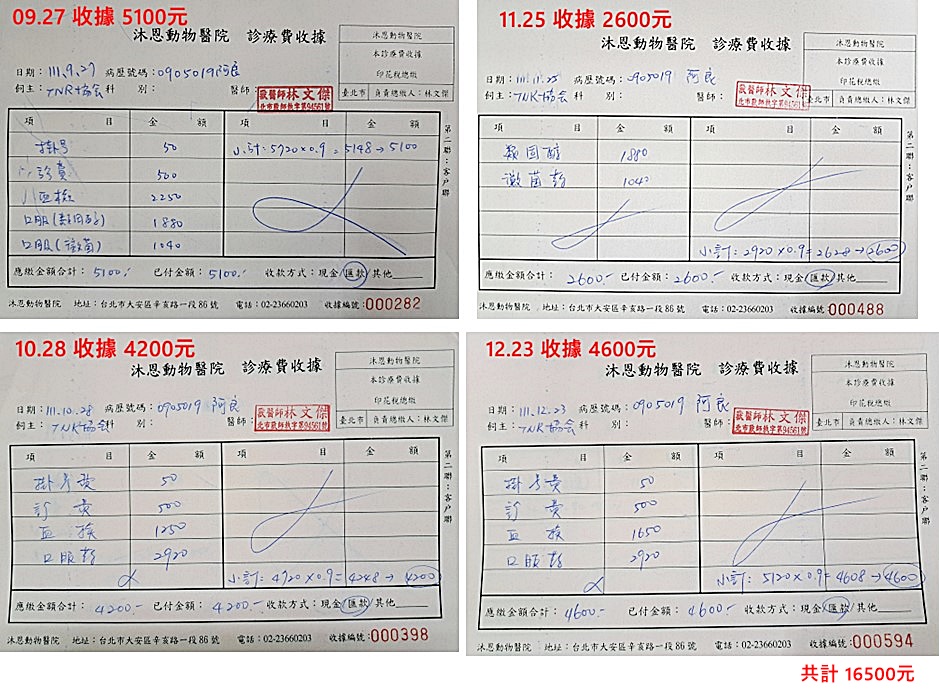 09.27 收據 5100元
沐恩動物醫院 診療費收據
沐恩動物醫院
本診療費收據
印花稅總繳
臺北市 負責總繳人：林文傑
日期：111.9.27 病歷號碼：0905019 阿良
飼主：TNR協會 科 別： 醫師：
獸醫師林文傑
北市獸師執字第94561號
項 目 金 額 項 目 金 額
掛号 50 小計：5720×0.9=5148→5100
診費 500
血檢 2250
口服(類固醇) 1880
口服(黴菌) 1040
第二聯：客戶聯
應繳金額合計：5100.- 已付金額：5100.- 收款方式：現金/匯款/其他
沐恩動物醫院 地址：台北市大安區辛亥路一段86號 電話：02-23660203 收據編號：000282
11.25 收據 2600元
沐恩動物醫院 診療費收據
沐恩動物醫院
本診療費收據
印花稅總繳
臺北市 負責總繳人：林文傑
日期：111.11.25 病歷號碼：0905019 阿良
飼主：TNR協會 科 別： 醫師：
獸醫師林文傑
北市獸師執字第94561號
項 目 金 額 項 目 金 額
類固醇 1880
黴菌葯 1040
小計：2920×0.9=2628→2600
第二聯：客戶聯
應繳金額合計：2600.- 已付金額：2600.- 收款方式：現金/匯款/其他
沐恩動物醫院 地址：台北市大安區辛亥路一段86號 電話：02-23660203 收據編號：000488
10.28 收據 4200元
沐恩動物醫院 診療費收據
沐恩動物醫院
本診療費收據
印花稅總繳
臺北市 負責總繳人：林文傑
日期：111.10.28 病歷號碼：0905019 阿良
飼主：TNR協會 科 別： 醫師：
獸醫師林文傑
北市獸師執字第94561號
項 目 金 額 項 目 金 額
掛号費 50
診費 500
血檢 1250
口服葯 2920
小計：4720×0.9=4248→4200
第二聯：客戶聯
應繳金額合計：4200.- 已付金額：4200.- 收款方式：現金/匯款/其他
沐恩動物醫院 地址：台北市大安區辛亥路一段86號 電話：02-23660203 收據編號：000398
12.23 收據 4600元
沐恩動物醫院 診療費收據
沐恩動物醫院
本診療費收據
印花稅總繳
臺北市 負責總繳人：林文傑
日期：111.12.23 病歷號碼：0905019 阿良
飼主：TNR協會 科 別： 醫師：
獸醫師林文傑
北市獸師執字第94561號
項 目 金 額 項 目 金 額
掛号費 50
診費 500
血檢 1650
口服葯 2920
小計：5120×0.9=4608→4600
第二聯：客戶聯
應繳金額合計：4600.- 已付金額：4600.- 收款方式：現金/匯款/其他
沐恩動物醫院 地址：台北市大安區辛亥路一段86號 電話：02-23660203 收據編號：000594
共計 16500元